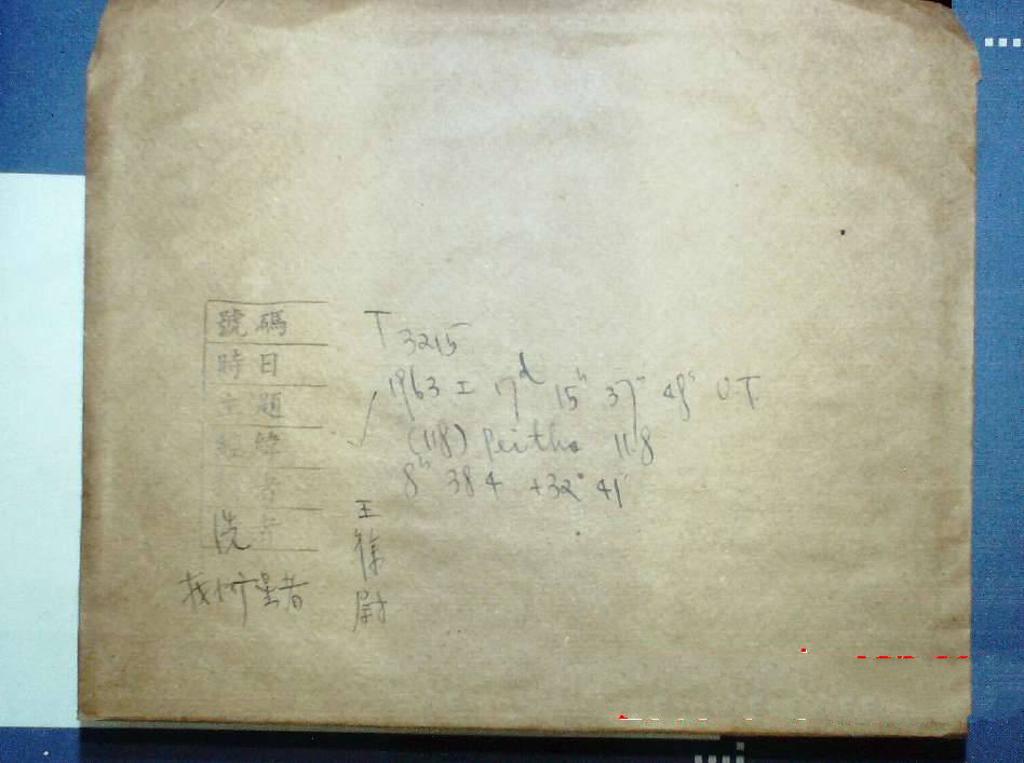 號碼 T 3215
時日 1963 I 17d 15h 37m 49s U.T.
主題 (118) Peitho 11.8
經緯 8h 38.4 +32° 41'
者 王
洗 者 徐
找小行星者 尉